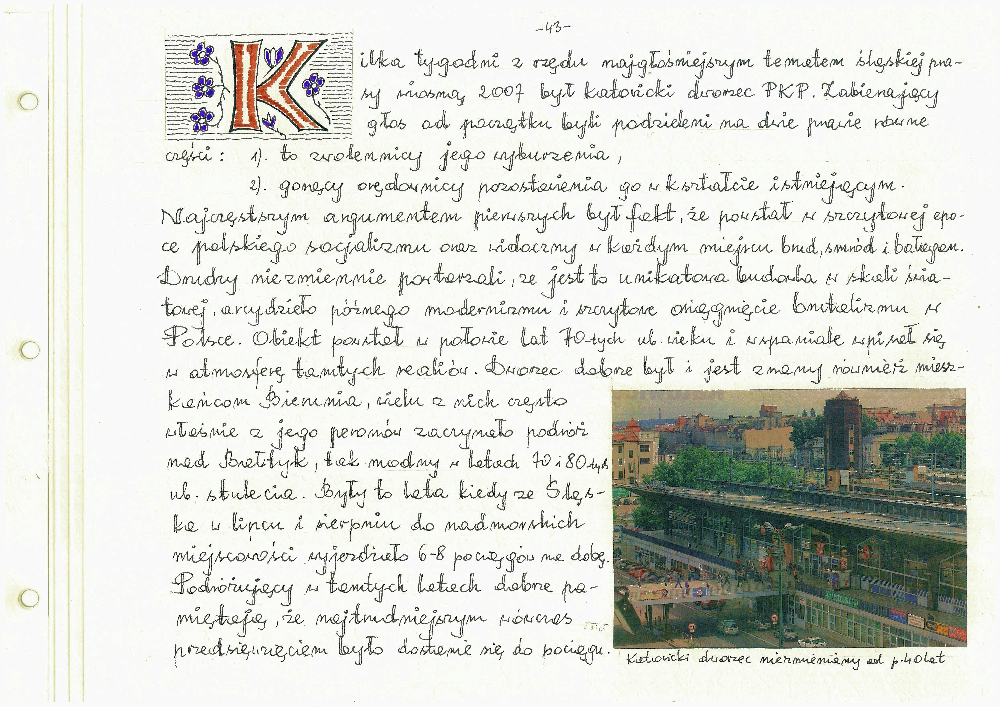 -43-
Kilka tygodni z rzędu najgłośniejszym tematem śląskiej pra-
sy wiosną 2007 był katowicki dworzec PKP. Zabierający
głos od początku byli podzieleni na dwie prawie równe
części: 1). to zwolennicy jego wyburzenia,
2). gorący orędownicy pozostawienia go w kształcie istniejącym.
Najczęstszym argumentem pierwszych był fakt, że powstał w szczytowej epo-
ce polskiego socjalizmu oraz widoczny w każdym miejscu brud, smród i bałagan.
Drudzy niezmiennie powtarzali, że jest to unikatowa budowla w skali świa-
towej, arcydzieło późnego modernizmu i szczytowe osiągnięcie brutalizmu w
Polsce. Obiekt powstał w połowie lat 70-tych ub. wieku i wspaniale wpisał się
w atmosferę tamtych realiów. Dworzec dobrze był i jest znany również miesz-
kańcom Bierunia, wielu z nich często
właśnie z jego peronów zaczynało podróż
nad Bałtyk, tak modny w latach 70 i 80-tych
ub. stulecia. Były to lata kiedy ze Śląs-
ka w lipcu i sierpniu do nadmorskich
miejscowości wyjeżdżało 6-8 pociągów na dobę.
Podróżujący w tamtych latach dobrze pa-
miętają, że najtrudniejszym wówczas
przedsięwzięciem było dostanie się do pociągu.
Katowicki dworzec niezmieniany od p.40 lat